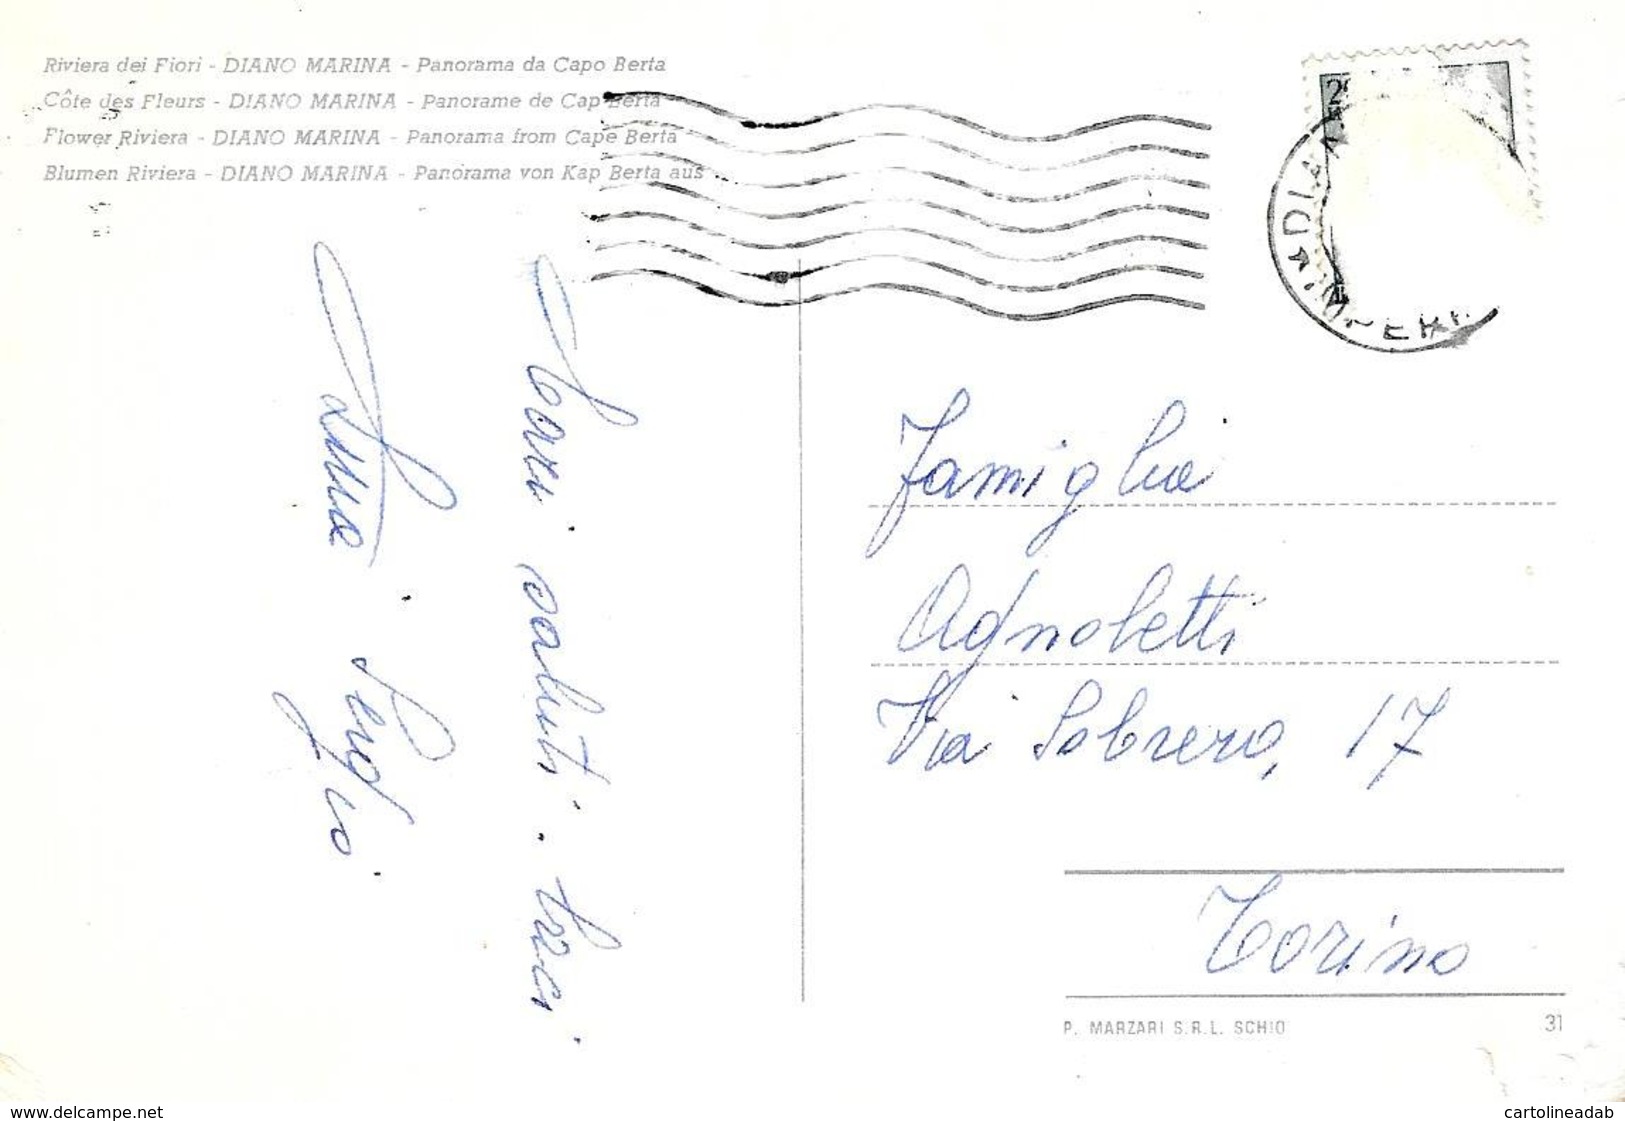 Riviera dei Fiori - DIANO MARINA - Panorama da Capo Berta
Côte des Fleurs - DIANO MARINA - Panorame de Cap Berta
Flower Riviera - DIANO MARINA - Panorama from Cape Berta
Blumen Riviera - DIANO MARINA - Panorama von Kap Berta aus
Cari saluti.
Anna Sergio
Famiglia
Agnoletti
Via Sobrero, 17
Torino
P. MARZARI S.R.L. SCHIO
31
www.delcampe.net
cartolineadab